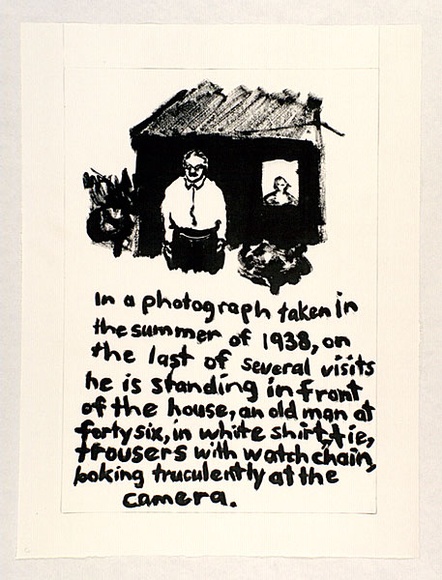 In a photograph taken in
the summer of 1938, on
the last of several visits
he is standing in front
of the house, an old man at
forty six, in white shirt, tie,
trousers with watch chain,
looking truculently at the
camera.